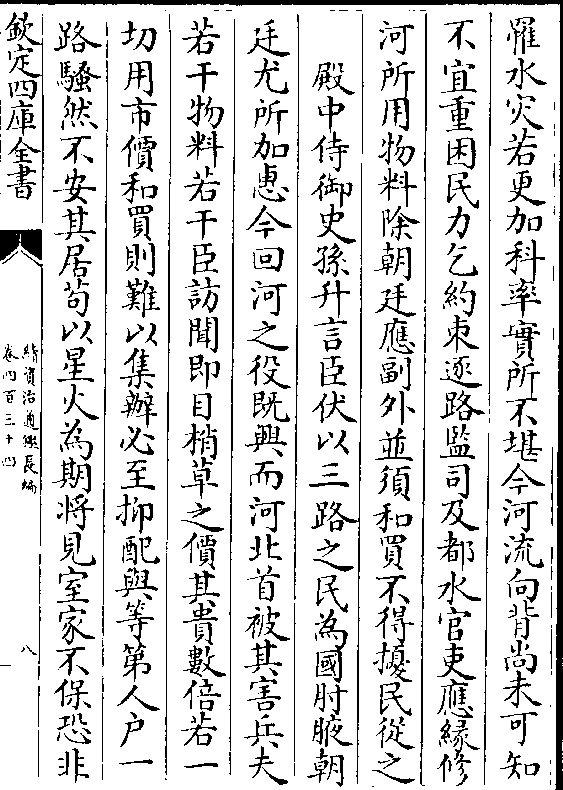 罹水灾若更加科率實所不堪今河流向背尚未可知
不宜重困民力乞約束逐路監司及都水官吏應緣修
河所用物料除朝廷應副外並須和買不得擾民從之
殿中侍御史孫升言臣伏以三路之民為國肘腋朝
廷尤所加惠今回河之役既興而河北首被其害兵夫
若干物料若干臣訪聞即目梢草之價其貴數倍若一
切用市價和買則難以集辦必至抑配與等第人户一
路騷然不安其居茍以星火為期將見室家不保恐非
欽定四庫全書
續資治通鑑長編
卷四百三十四
八